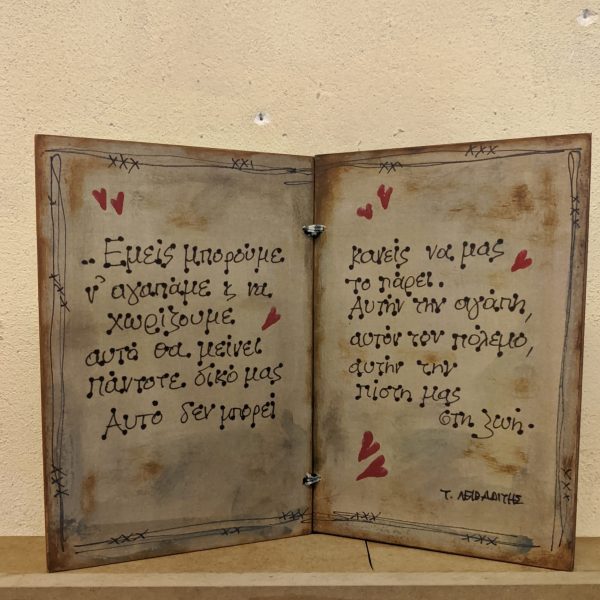 .. Εμείς μπορούμε
ν' αγαπάμε ξ να
χωρίζουμε
αυτό θα μείνει
πάντοτε δικό μας
Αυτό δεν μπορεί
κανείς να μας
το πάρει.
Αυτήν την αγάπη,
αυτόν τον πόλεμο,
αυτήν την
πίστη μας
στη ζωή.
Τ. ΛΕΙΒΑΔΙΤΗΣ